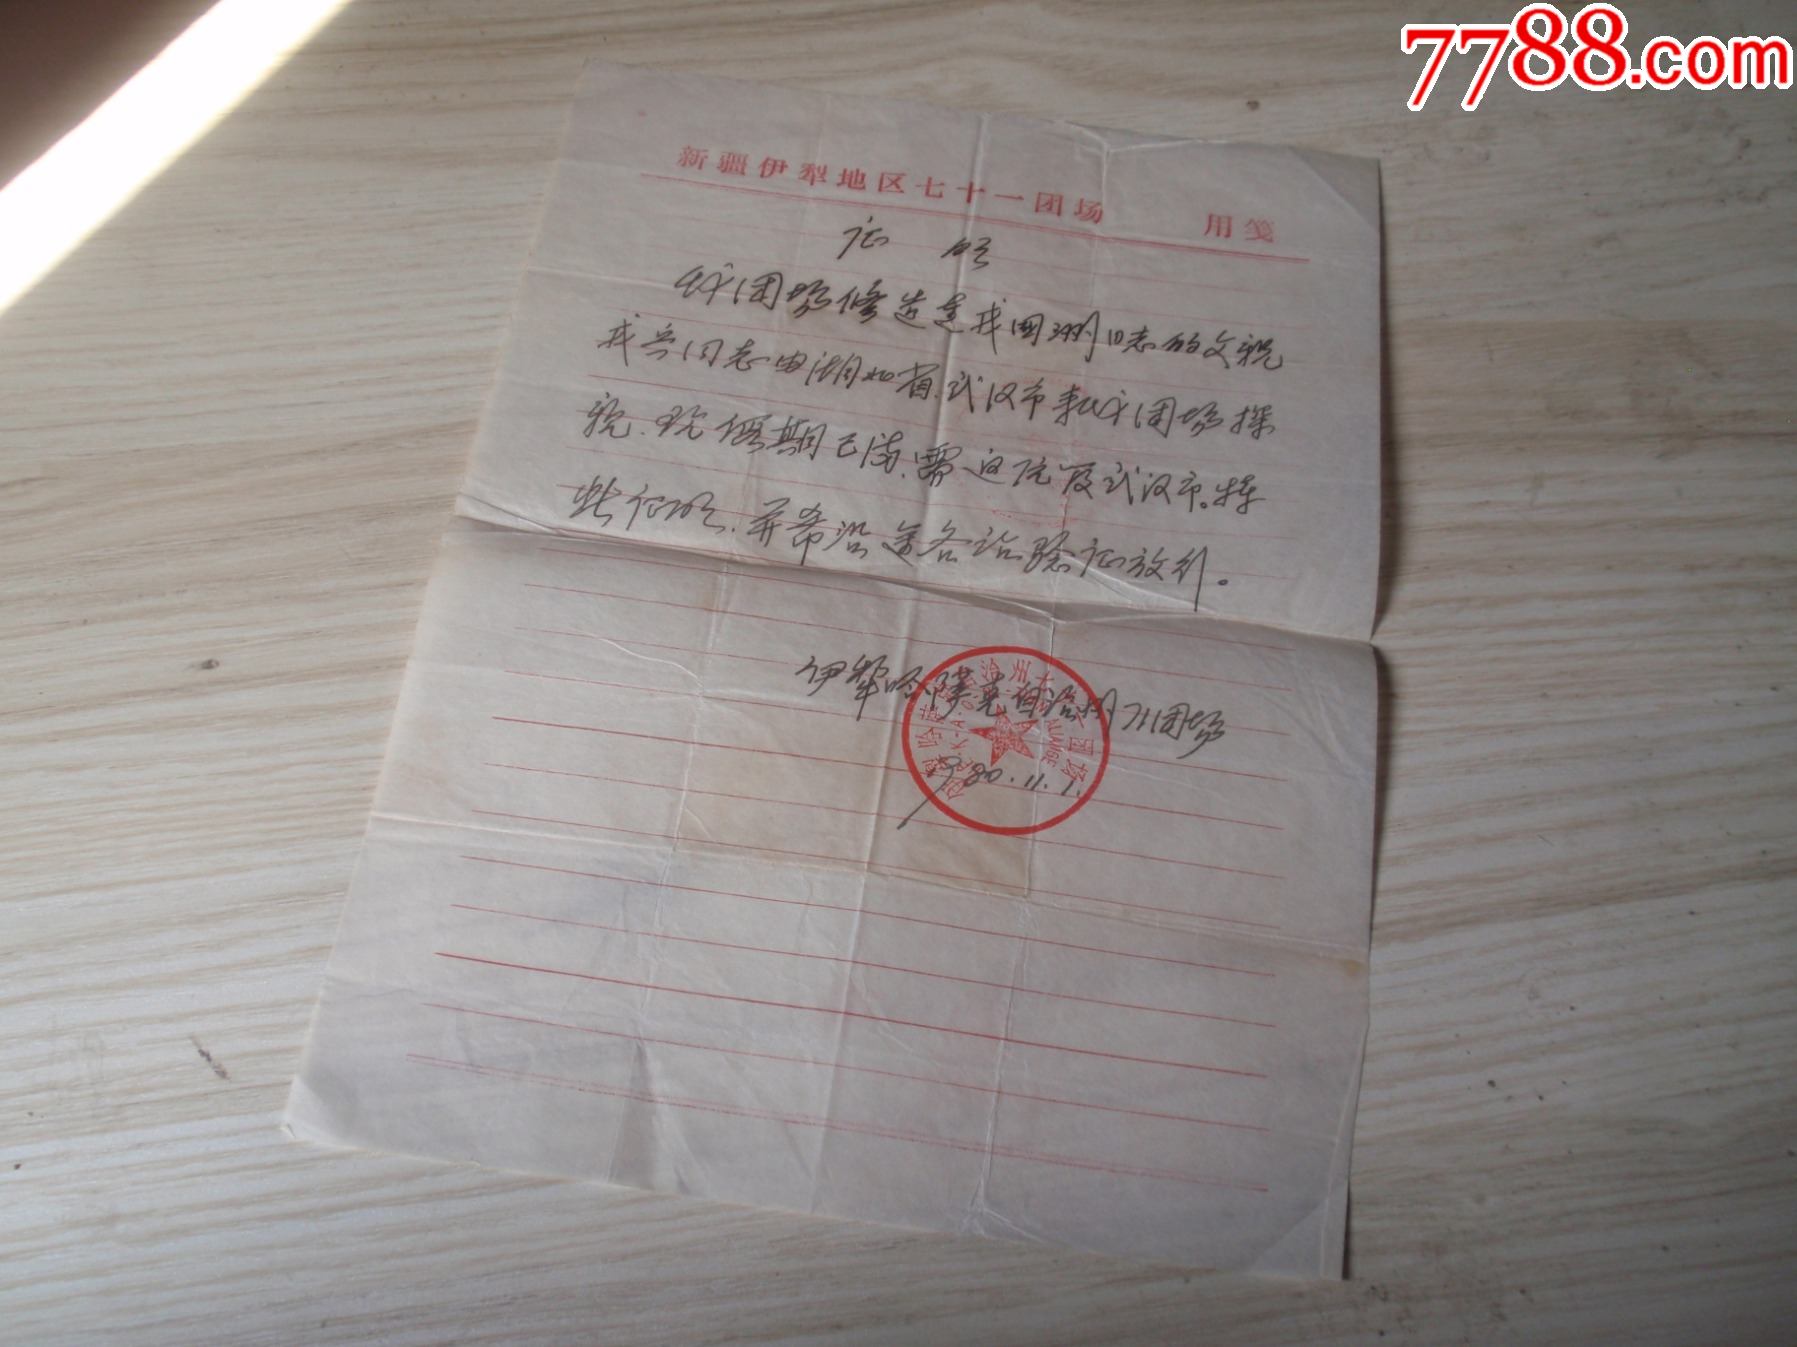 7788.com
新疆伊犁地区七十一团场 用笺
证 明
我团场修造连戎国洲同志的父亲
戎兴同志由湖北省武汉市来我团场探
亲.现假期已满.需返往武汉市。特
此证明.并希沿途各站验证放行。
伊犁哈萨克自治州71团场
1980.11.1.